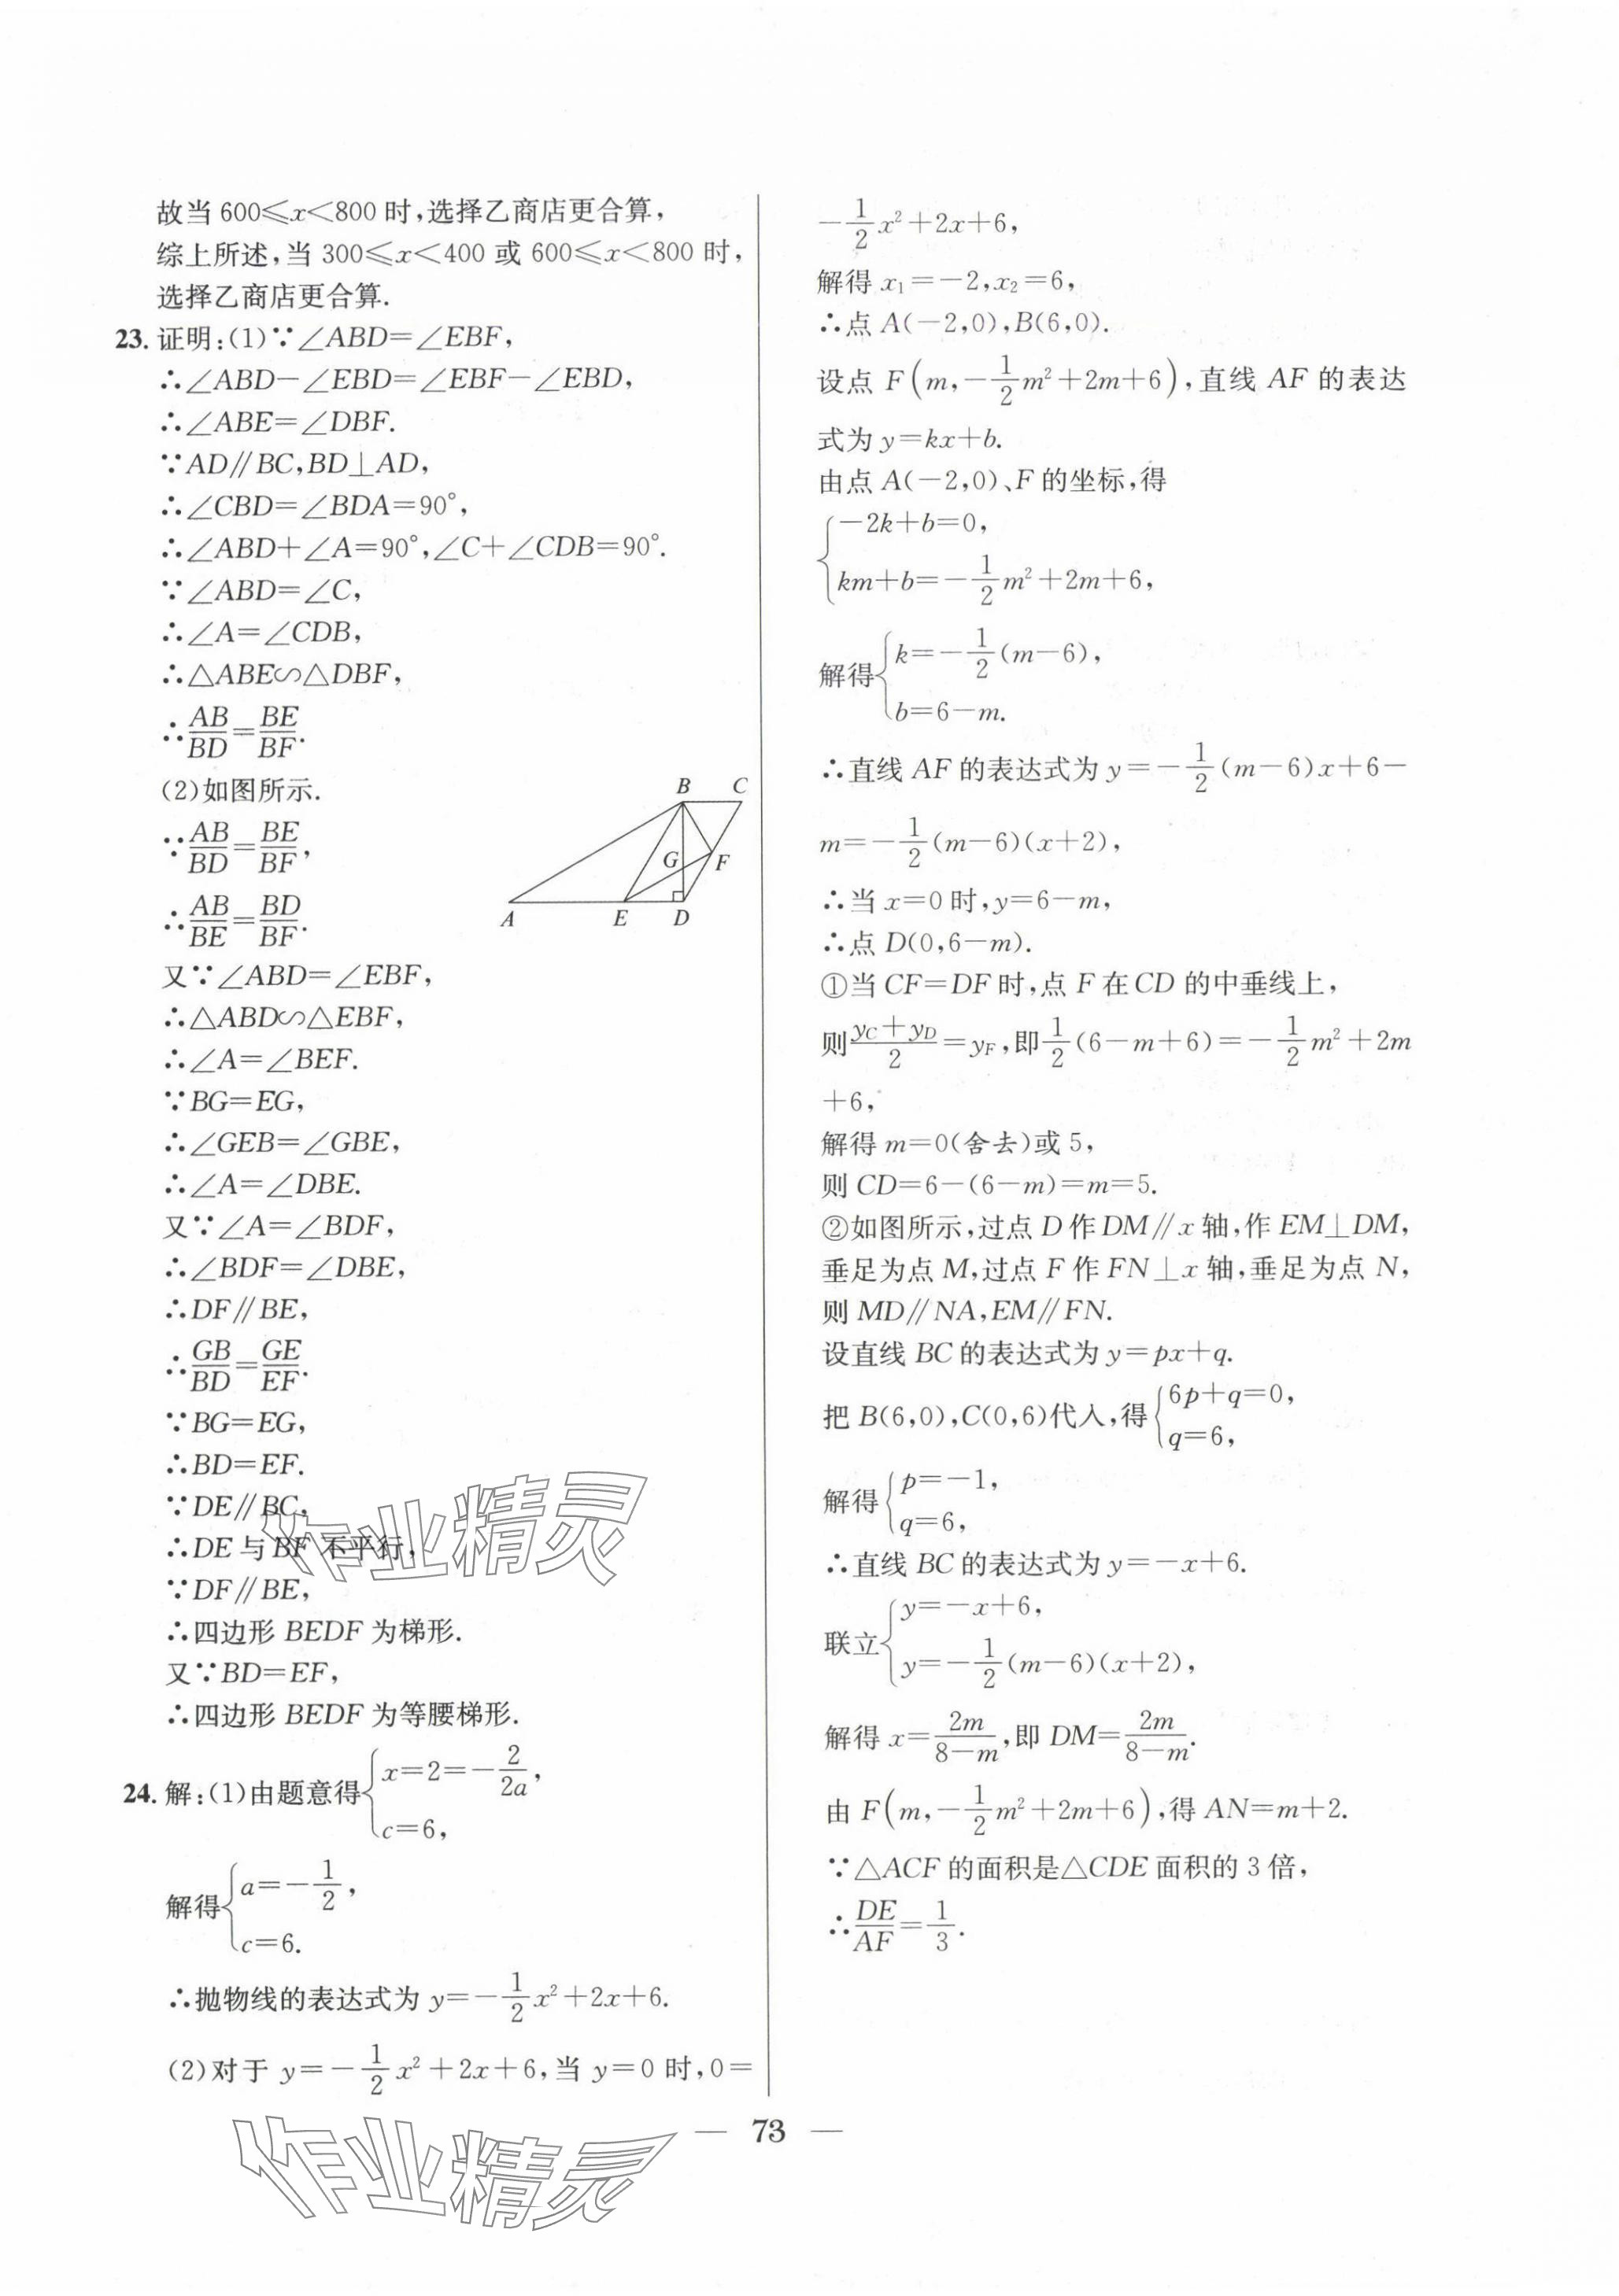 故当 600≤x<800 时,选择乙商店更合算,
综上所述,当 300≤x<400 或 600≤x<800 时,
选择乙商店更合算.
23. 证明:(1)∵∠ABD=∠EBF,
∴∠ABD-∠EBD=∠EBF-∠EBD,
∴∠ABE=∠DBF.
∵AD∥BC,BD⊥AD,
∴∠CBD=∠BDA=90°,
∴∠ABD+∠A=90°,∠C+∠CDB=90°.
∵∠ABD=∠C,
∴∠A=∠CDB,
∴△ABE∽△DBF,
∴AB/BD=BE/BF.
(2)如图所示.
∵AB/BD=BE/BF,
∴AB/BE=BD/BF.
B C
G F
A E D
又∵∠ABD=∠EBF,
∴△ABD∽△EBF,
∴∠A=∠BEF.
∵BG=EG,
∴∠GEB=∠GBE,
∴∠A=∠DBE.
又∵∠A=∠BDF,
∴∠BDF=∠DBE,
∴DF∥BE,
∴GB/BD=GE/EF.
∵BG=EG,
∴BD=EF.
∵DE∥BC,
∴DE 与 BF 不平行,
∵DF∥BE,
∴四边形 BEDF 为梯形.
又∵BD=EF,
∴四边形 BEDF 为等腰梯形.
24. 解:(1)由题意得{x=2=-2/2a,
c=6,
解得{a=-1/2,
c=6.
∴抛物线的表达式为 y=-1/2x²+2x+6.
(2)对于 y=-1/2x²+2x+6,当 y=0 时,0=
-1/2x²+2x+6,
解得 x₁=-2,x₂=6,
∴点 A(-2,0),B(6,0).
设点 F(m,-1/2m²+2m+6),直线 AF 的表达
式为 y=kx+b.
由点 A(-2,0)、F 的坐标,得
{-2k+b=0,
km+b=-1/2m²+2m+6,
解得{k=-1/2(m-6),
b=6-m.
∴直线 AF 的表达式为 y=-1/2(m-6)x+6-
m=-1/2(m-6)(x+2),
∴当 x=0 时,y=6-m,
∴点 D(0,6-m).
①当 CF=DF 时,点 F 在 CD 的中垂线上,
则(y_C+y_D)/2=y_F,即1/2(6-m+6)=-1/2m²+2m
+6,
解得 m=0(舍去)或 5,
则 CD=6-(6-m)=m=5.
②如图所示,过点 D 作 DM∥x 轴,作 EM⊥DM,
垂足为点 M,过点 F 作 FN⊥x 轴,垂足为点 N,
则 MD∥NA,EM∥FN.
设直线 BC 的表达式为 y=px+q.
把 B(6,0),C(0,6)代入,得{6p+q=0,
q=6,
解得{p=-1,
q=6,
∴直线 BC 的表达式为 y=-x+6.
联立{y=-x+6,
y=-1/2(m-6)(x+2),
解得 x=2m/(8-m),即 DM=2m/(8-m).
由 F(m,-1/2m²+2m+6),得 AN=m+2.
∵△ACF 的面积是△CDE 面积的 3 倍,
∴DE/AF=1/3.
— 73 —
作业精灵
作业精灵